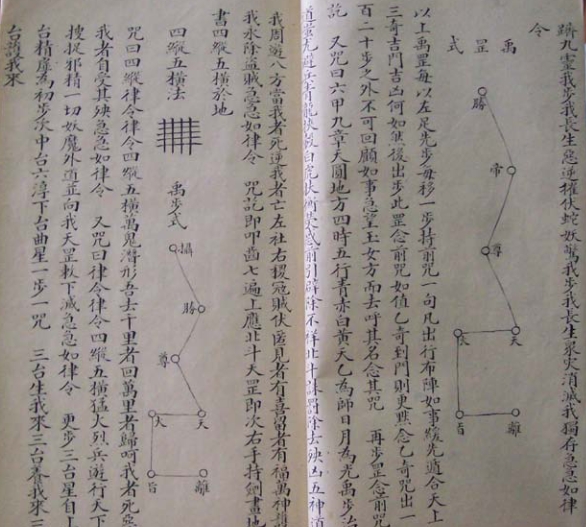 躋九靈我步我長生惡逆摧伏蛇妖驚我步我長生眾災消滅我獨存急急如律
令
禹罡式
勝
帝
尊
天
衣
首
離
以上禹罡每以左足先步每移一步持前咒一句凡出行布陣如事緩先適合天上
三奇吉門吉凶何如無後出步此罡念前咒如值乙奇到門則更默念乙奇咒出一
百二十步之外不可回顧如事急望玉女方而去呼其名念其咒 再步罡念前咒
訖 又咒曰六甲九章天圓地方四時五行青赤白黃天乙為師日月為光禹步治
道蚩尤避兵青龍扶轂白虎扶衡熒惑前引辟除不祥北斗誅罰除去殃凶五神道
我周遊八方當我者死逆我者亡左社右稷寇賊伏匿見者有喜留者有福萬神
我永除盜賊急急如律令 咒訖即叩齒七遍上應北斗天罡即次右手持劍畫地
書四縱五橫於地
四縱五橫法
禹步式
攝
勝
尊
天
大
旨
離
咒曰四縱律令律令四縱五橫萬鬼潛形吾去千里者回萬里者歸呵我者死惡
我者自受其殃急急如律令 又咒曰律令律令四縱五橫猛火烈兵遊行天下
搜捉邪精一切妖魔外道並向我天罡敕下滅急急如律令 更步三台星自上
台精庶為初步次中台六淳下台曲星一步一咒 三台生我來三台養我來三
台護我來